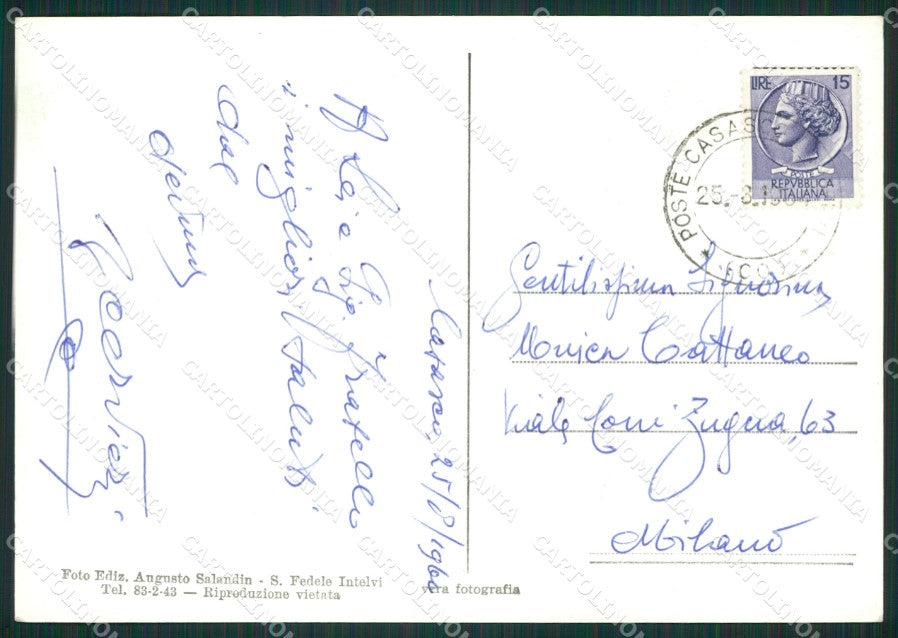 Casasco, 25/8/1960
A Lei e Sig. fratello
i migliori saluti
dal
LIRE 15
POSTE
REPVBBLICA
ITALIANA
POSTE CASASCO
25.-8.19
Gentilissima Signorina
Monica Cattaneo
Viale Coni Zugna, 63
Milano
Foto Ediz. Augusto Salandin - S. Fedele Intelvi
Tel. 83-2-43 — Riproduzione vietata
vera fotografia
CARTOLINOMANIA